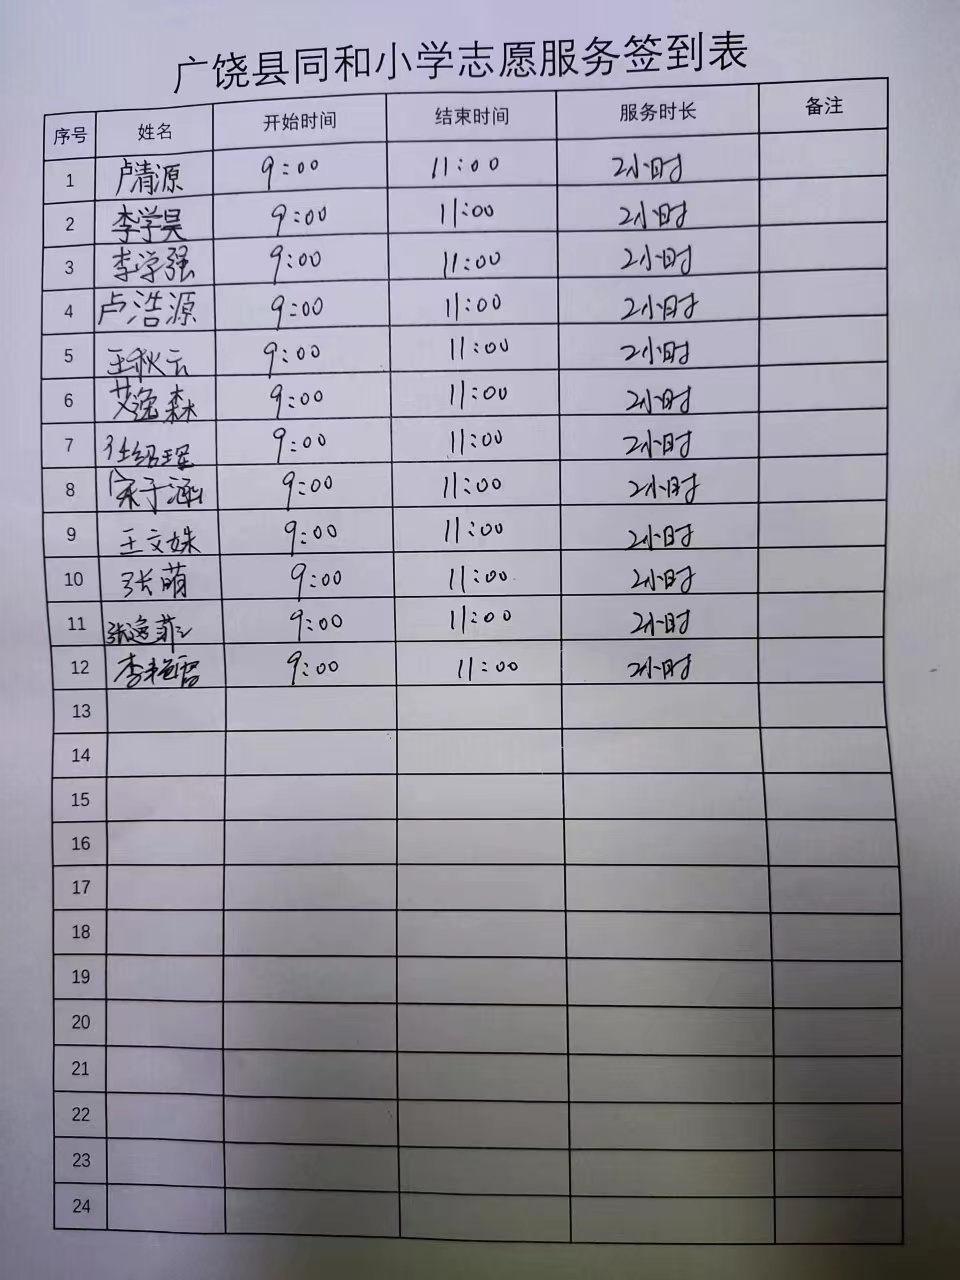 广饶县同和小学志愿服务签到表
序号 姓名 开始时间 结束时间 服务时长 备注
1 卢清源 9:00 11:00 2小时
2 李学昊 9:00 11:00 2小时
3 李学强 9:00 11:00 2小时
4 卢浩源 9:00 11:00 2小时
5 王秋云 9:00 11:00 2小时
6 艾逸森 9:00 11:00 2小时
7 任绍珲 9:00 11:00 2小时
8 宋于涵 9:00 11:00 2小时
9 王文姝 9:00 11:00 2小时
10 张萌 9:00 11:00 2小时
11 张逸菲 9:00 11:00 2小时
12 李艳雷 9:00 11:00 2小时
13
14
15
16
17
18
19
20
21
22
23
24